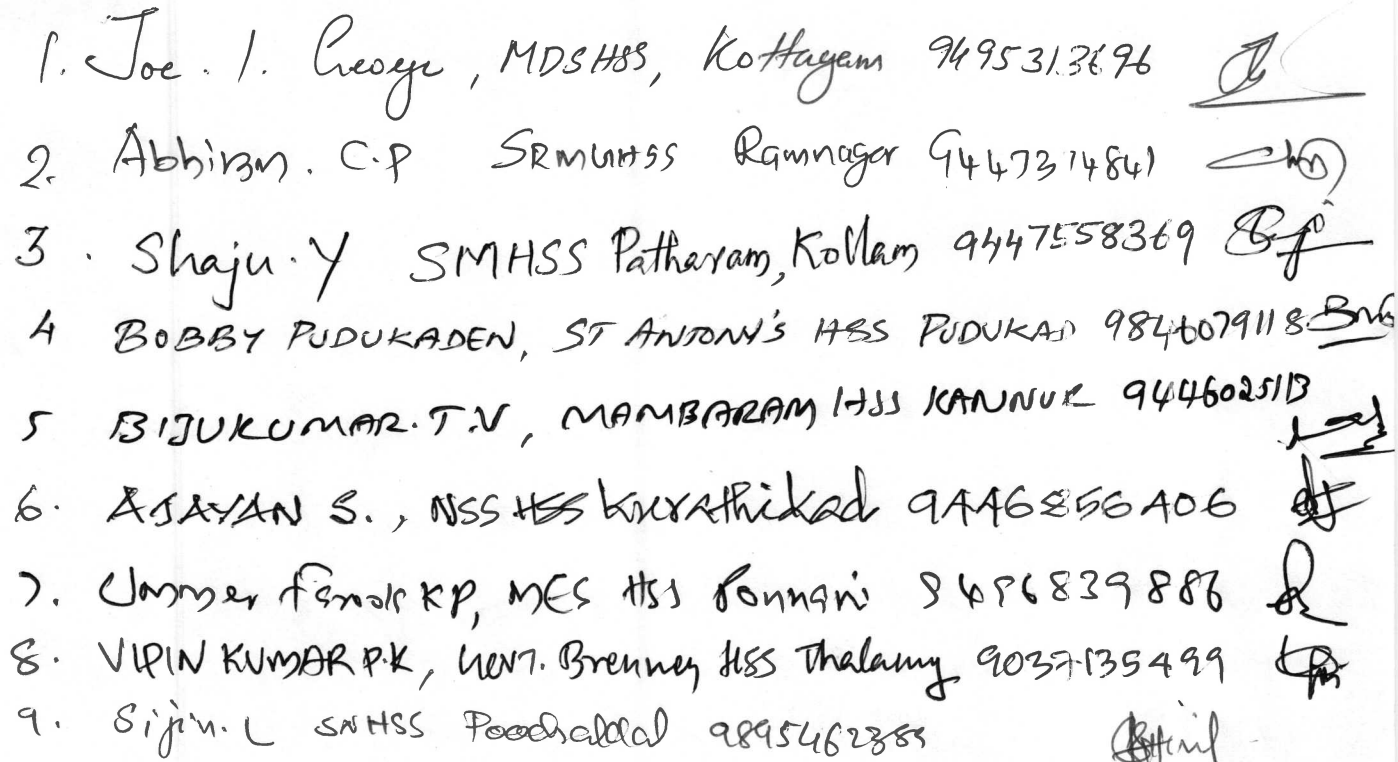 1. Joe. I. George, MDSHSS, Kottayam 9495313696
2. Abhiram. C.P SRMGHSS Ramnagar 9447314841
3. Shaju. Y SMHSS Patharam, Kollam 9447558369
4 BOBBY PUDUKADEN, ST ANTONY'S HSS PUDUKAD 9846079118
5 BIJUKUMAR. T.V, MAMBARAM HSS KANNUR 9446025113
6. AJAYAN S., NSS HSS Kurathikad 9446856406
7. Ummer Farook KP, MES HSS Ponnani 9496839886
8. VIPIN KUMAR P.K, GOVT. Brennen HSS Thalassery 9037135499
9. Sijin. L SNHSS 9895462389